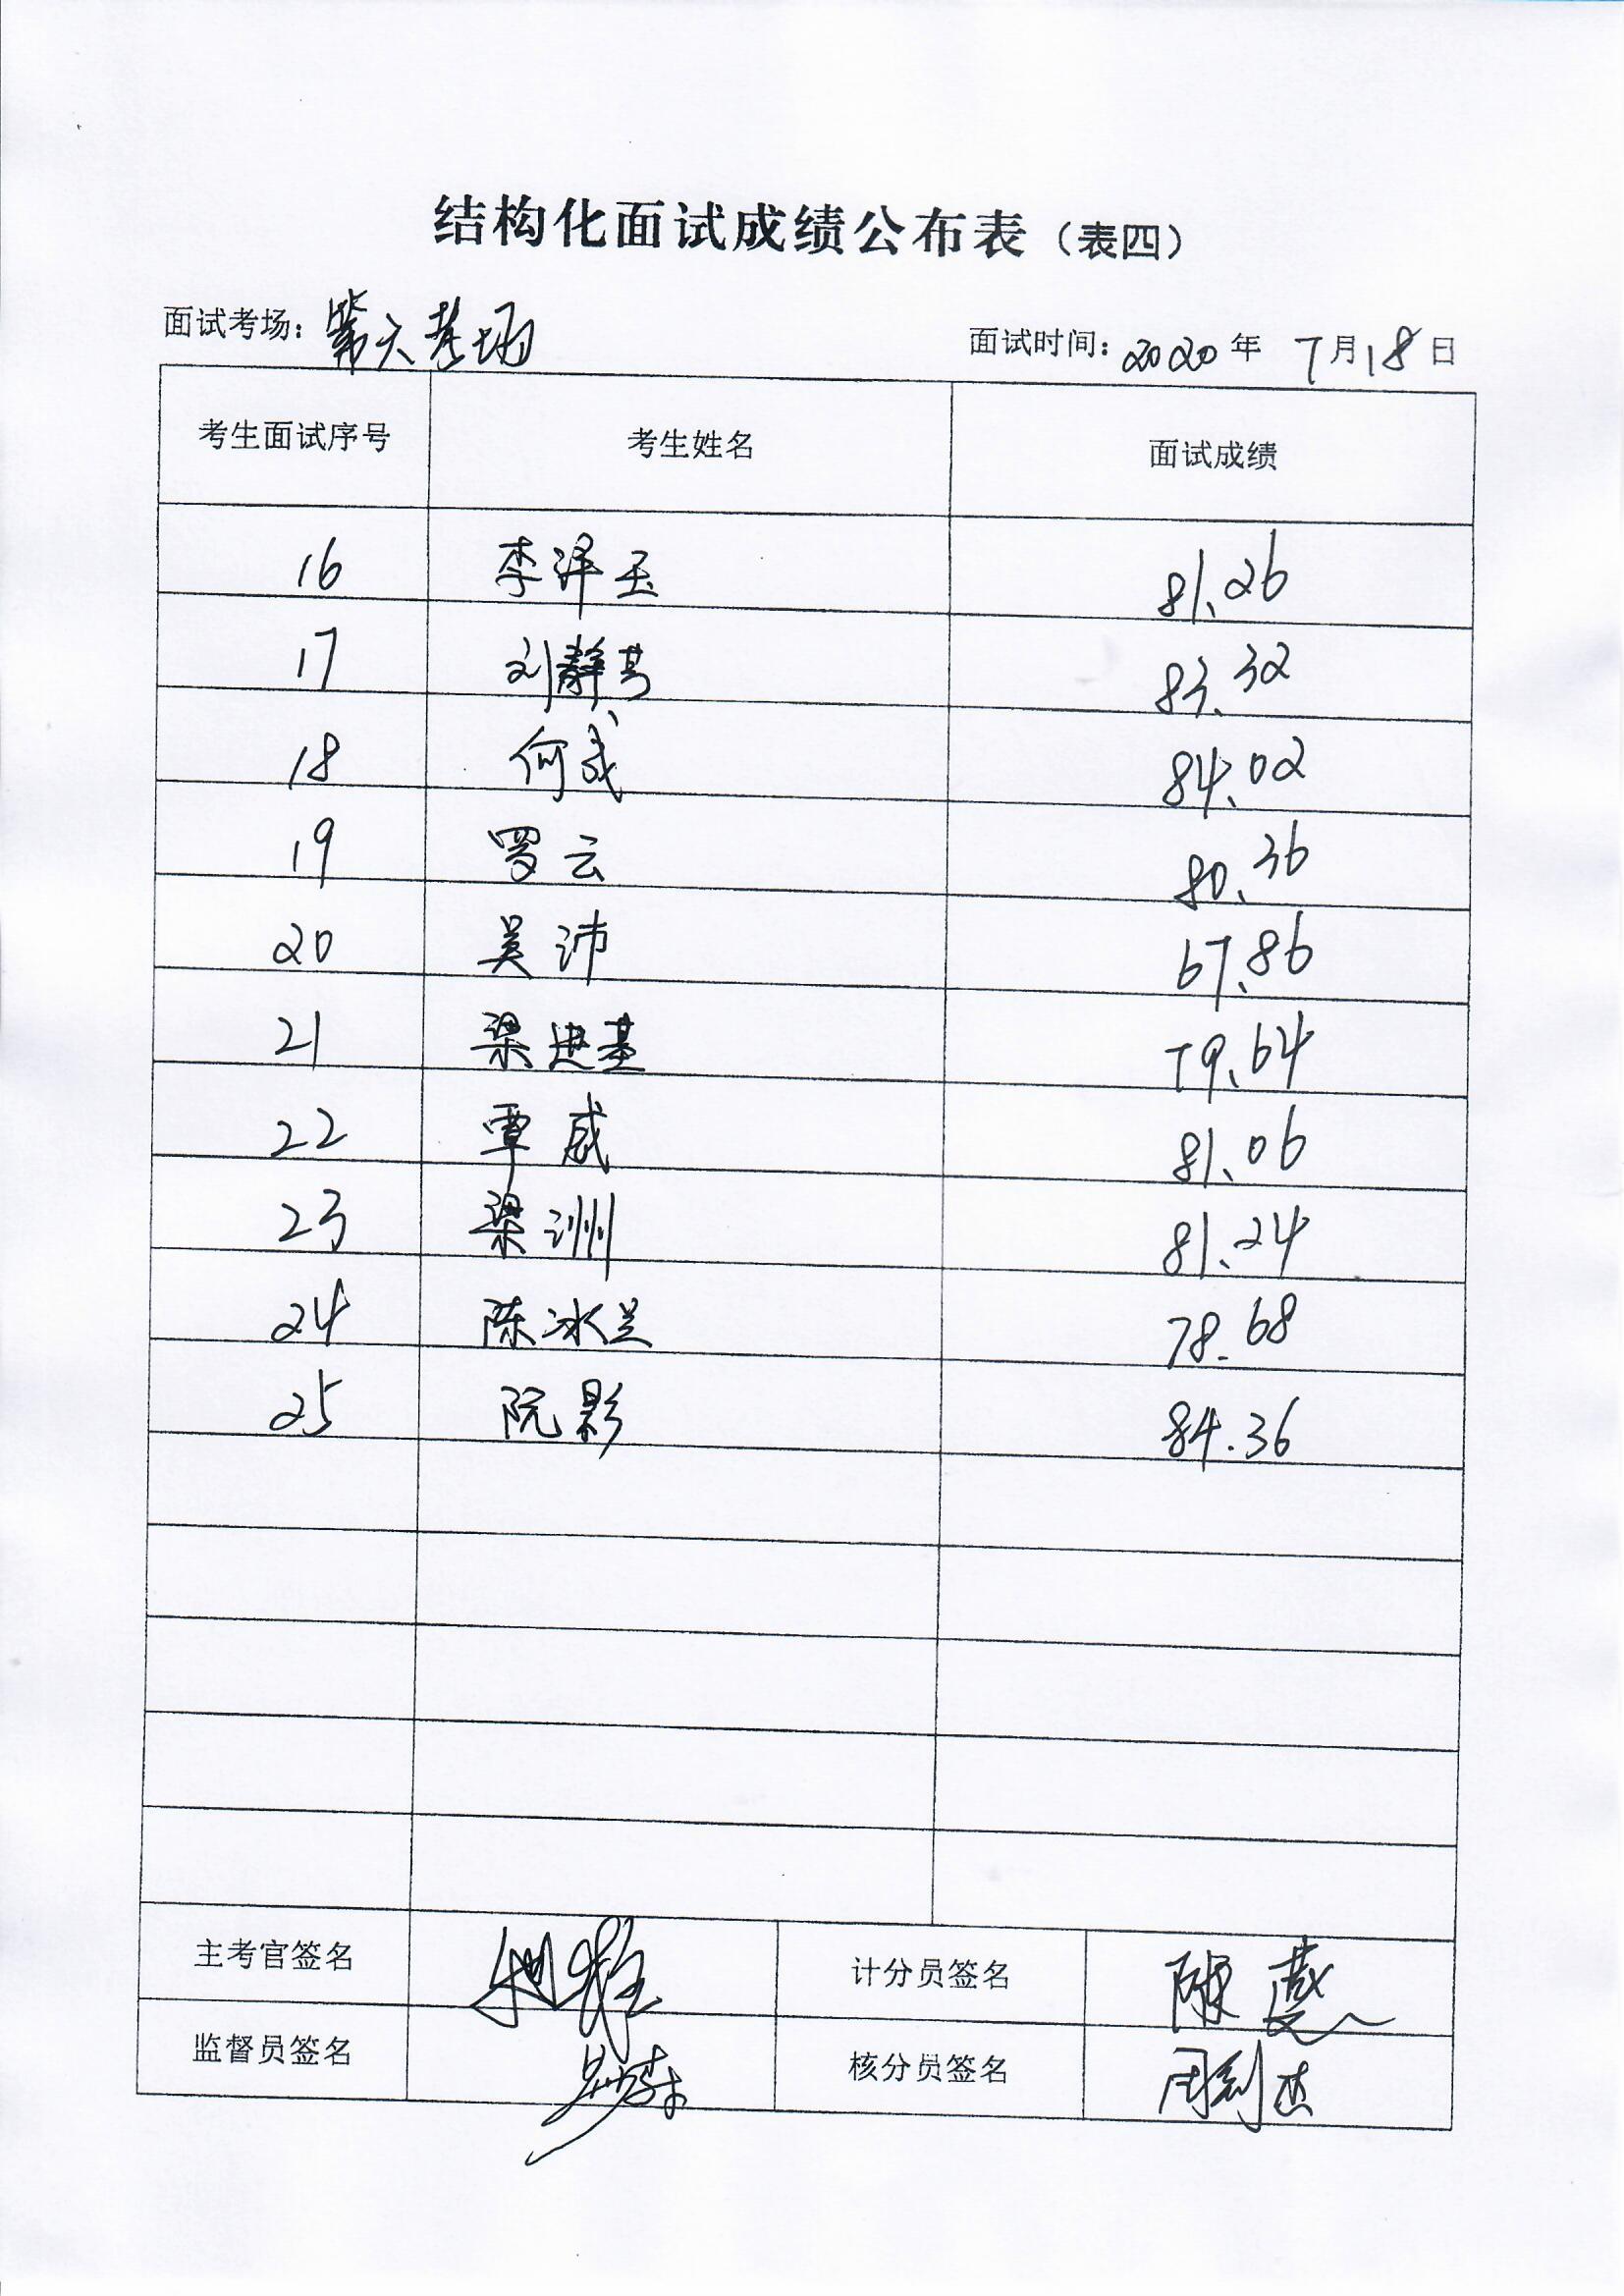 结构化面试成绩公布表（表四）
面试考场：第六考场 面试时间：2020年 7月18日
考生面试序号 考生姓名 面试成绩
16 李泽玉 81.26
17 刘静 83.32
18 何成 84.02
19 罗云 80.36
20 吴沛 67.86
21 梁进基 79.64
22 覃威 81.06
23 梁洲 81.24
24 陈冰兰 78.68
25 阮影 84.36
主考官签名 计分员签名 陈
监督员签名 核分员签名 周